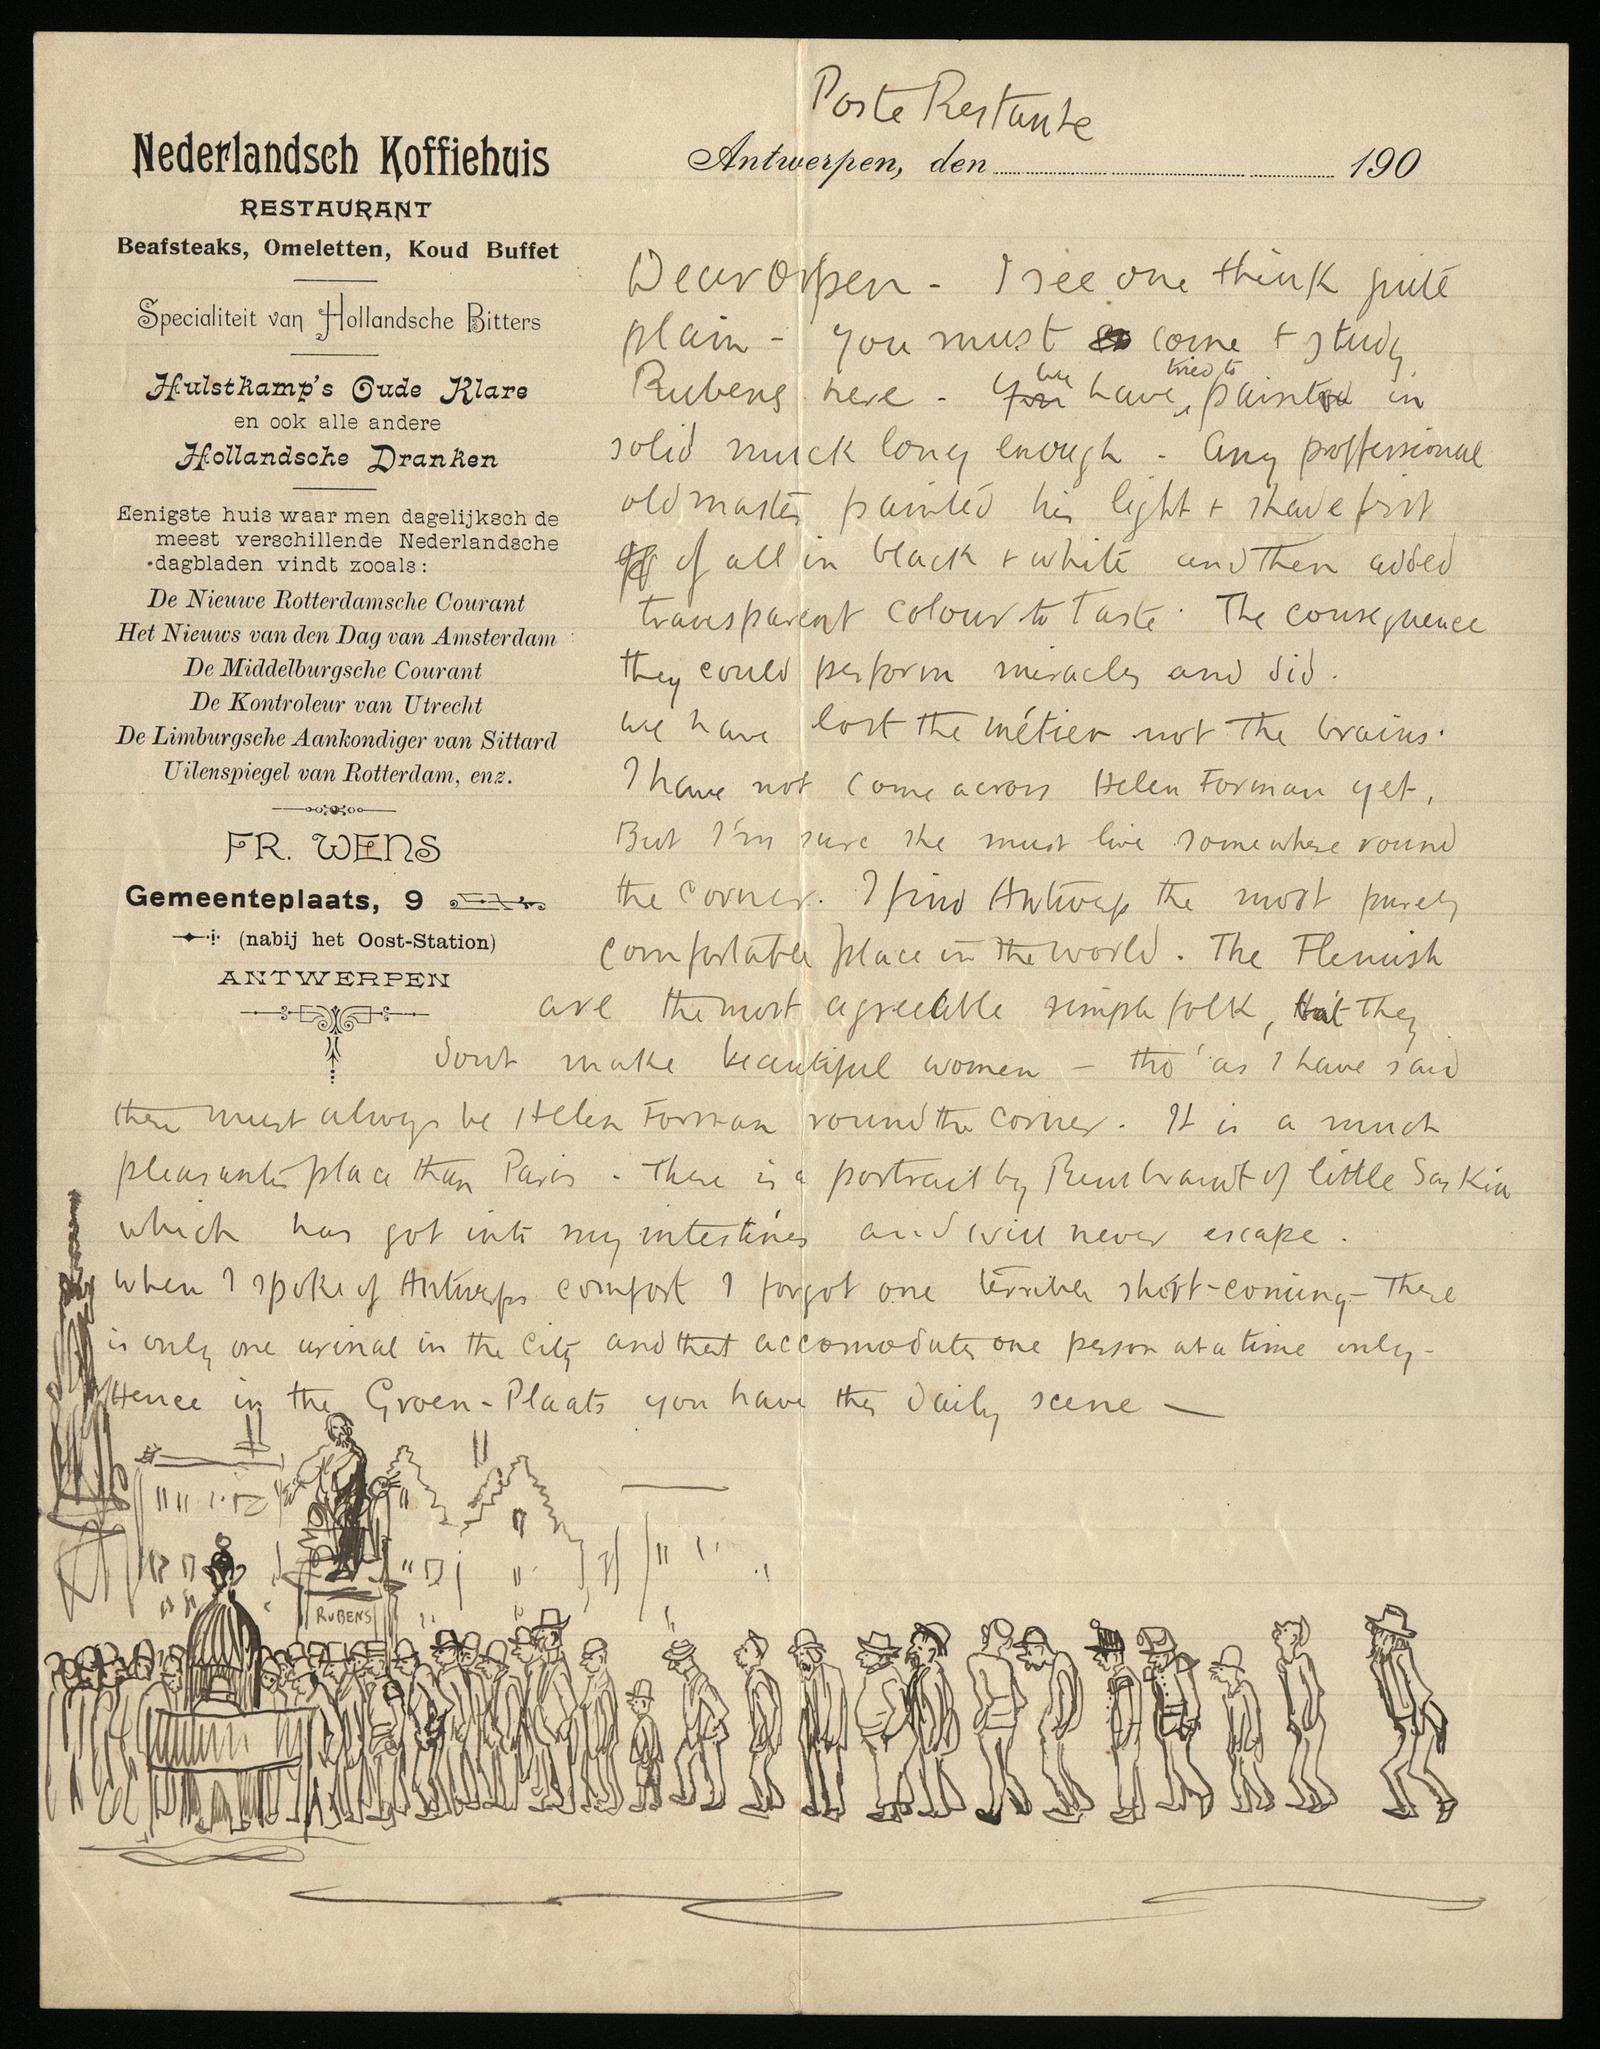 Poste Restante
Nederlandsch Koffiehuis
RESTAURANT
Beafsteaks, Omeletten, Koud Buffet
Specialiteit van Hollandsche Bitters
Hulstkamp's Oude Klare
en ook alle andere
Hollandsche Dranken
Eenigste huis waar men dagelijksch de
meest verschillende Nederlandsche
dagbladen vindt zooals:
De Nieuwe Rotterdamsche Courant
Het Nieuws van den Dag van Amsterdam
De Middelburgsche Courant
De Kontroleur van Utrecht
De Limburgsche Aankondiger van Sittard
Uilenspiegel van Rotterdam, enz.
FR. WENS
Gemeenteplaats, 9
(nabij het Oost-Station)
ANTWERPEN
Antwerpen, den 190
Dear Orpen - I see one think quite
plain - you must come + study
Rubens here - You we have tried to painted in
solid muck long enough - Any proffessional
old master painted his light + shade first
of all in black + white and then added
transparent colour to taste. The consequence
they could perform miracles and did.
we have lost the métier not the brains.
I have not come across Helen Forman yet,
But I'm sure she must live somewhere round
the corner. I find Antwerp the most purely
comfortable place in the world. The Flemish
are the most agreeable simple folk, they
dont make beautiful women - tho' as I have said
there must always be Helen Forman round the corner. It is a much
pleasanter place than Paris - There is a portrait by Rembrandt of little Saskia
which has got into my intestines and will never escape.
when I spoke of Antwerps comfort I forgot one terrible short-coming - There
is only one urinal in the city and that accomodates one person at a time only -
Hence in the Groen-Plaats you have this daily scene —
RUBENS